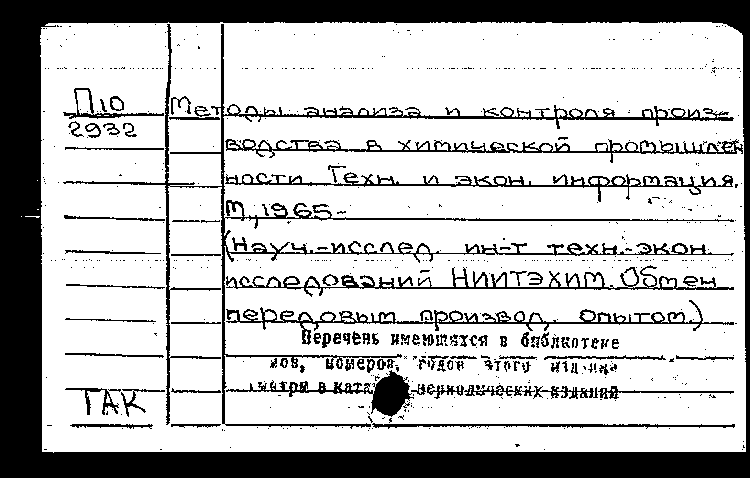 П10
2932
Методы анализа и контроля произ-
водства в химической промышлен
ности. Техн. и экон. информация.
М., 1965-
(Науч.-исслед. ин-т техн.-экон.
исследований НИИТЭХИМ. Обмен
передовым производ. опытом.)
Перечень имеющихся в библиотеке
номеров, годов этого
в периодических изданий
ГАК